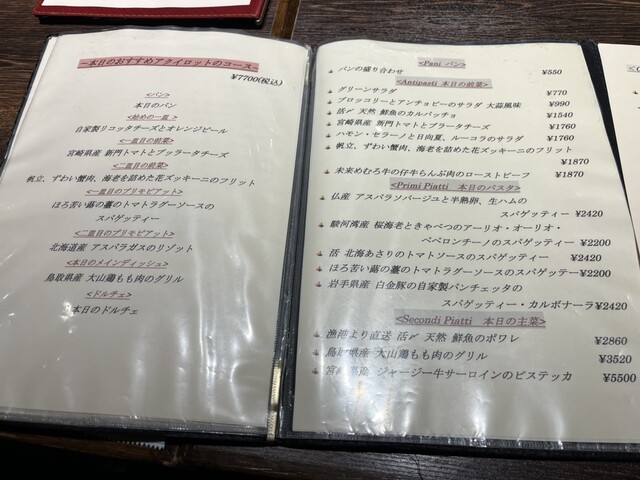 ~本日のおすすめアクイロットのコース~
¥7700(税込)
<パン>
本日のパン
<始めの一皿>
自家製リコッタチーズとオレンジピール
<一皿目の前菜>
宮崎県産 新門トマトとブッラータチーズ
<二皿目の前菜>
帆立、ずわい蟹肉、海老を詰めた花ズッキーニのフリット
<一皿目のプリモピアット>
ほろ苦い蕗の薹のトマトラグーソースの
スパゲッティー
<二皿目のプリモピアット>
北海道産 アスパラガスのリゾット
<本日のメインディッシュ>
鳥取県産 大山鶏もも肉のグリル
<ドルチェ>
本日のドルチェ
<Pani パン>
パンの盛り合わせ ¥550
<Antipasti 本日の前菜>
グリーンサラダ ¥770
ブロッコリーとアンチョビーのサラダ 大蒜風味 ¥990
活〆 天然 鮮魚のカルパッチョ ¥1540
宮崎県産 新門トマトとブッラータチーズ ¥1760
ハモン・セラーノと日向夏、ルーコラのサラダ ¥1760
帆立、ずわい蟹肉、海老を詰めた花ズッキーニのフリット
¥1870
未来めむろ牛の仔牛らんぷ肉のローストビーフ ¥1870
<Primi Piatti 本日のパスタ>
仏産 アスパラソバージュと半熟卵、生ハムの
スパゲッティー ¥2420
駿河湾産 桜海老ときゃべつのアーリオ・オーリオ・
ペペロンチーノのスパゲッティー ¥2200
活 北海あさりのトマトソースのスパゲッティー ¥2420
ほろ苦い蕗の薹のトマトラグーソースのスパゲッティー ¥2200
岩手県産 白金豚の自家製パンチェッタの
スパゲッティー・カルボナーラ ¥2420
<Secondi Piatti 本日の主菜>
漁港より直送 活〆 天然 鮮魚のポワレ ¥2860
鳥取県産 大山鶏もも肉のグリル ¥3520
宮崎県産 ジャージー牛サーロインのビステッカ ¥5500